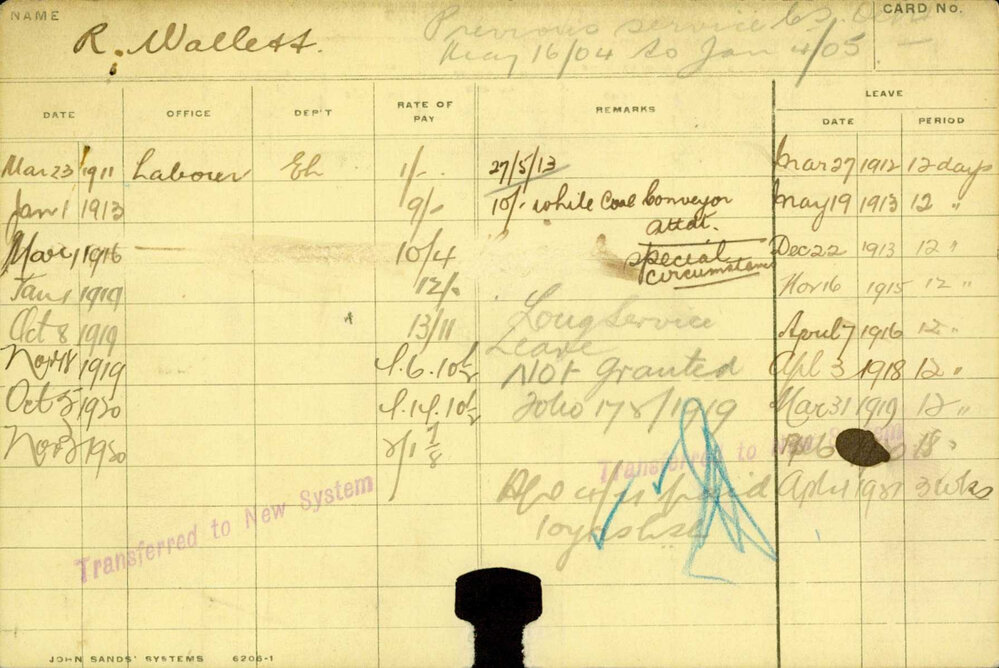 NAME
CARD No.
R. Wallett.
Previous service
May 16/04 to Jan 4/05
LEAVE
DATE OFFICE DEP'T RATE OF PAY REMARKS DATE PERIOD
Mar 23 1911 Labourer Eh 1/- 27/5/13 Mar 27 1912 12 days
Jan 1 1913 9/- 10/- while Coal Conveyor May 19 1913 12 "
attdt.
Mar 1 1916 10/4 special Dec 22 1913 12 "
circumstances
Jan 1 1919 12/- Nov 16 1915 12 "
Oct 8 1919 13/11 Long Service April 7 1916 12 "
Leave
Nov 18 1919 Not Granted Apl 3 1918 12 "
Oct 5 1920 Folio 178/1919 Mar 31 1919 12 "
Nov 1920
Transferred to New System
Apl paid Apr 1 3 wks
Transferred to New System
JOHN SANDS' SYSTEMS 6206-1